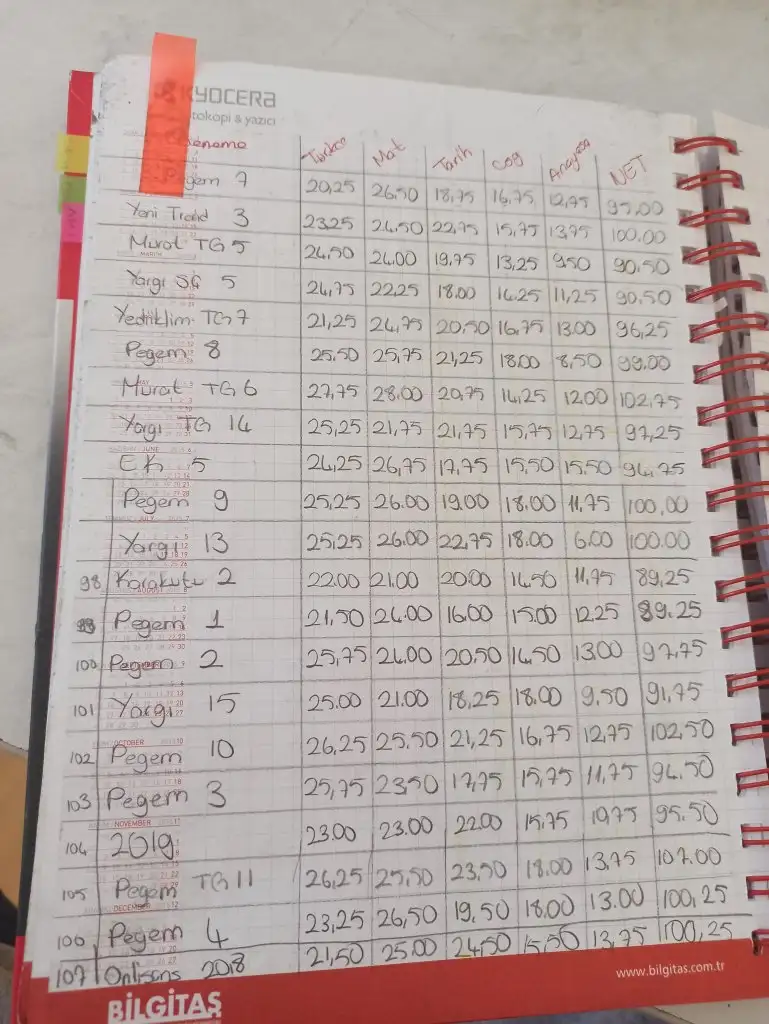 KYOCERA
tokopi & yazıcı
eneme Türkçe Mat Tarih Coğ Anayasa NET
egem 7 20,25 26,50 18,75 16,75 12,75 95,00
Yeni Trend 3 23,25 24,50 22,75 15,75 13,75 100,00
Murat TG 5 24,50 24,00 19,75 13,25 9,50 90,50
Yargı SG 5 24,75 22,25 18.00 14.25 11,25 90,50
Yediiklim TG 7 21,25 24,75 20,50 16,75 13.00 96,25
Pegem 8 25.50 25,75 21,25 18.00 8,50 99.00
Murat TG 6 27,75 28,00 20,75 14,25 12.00 102,75
Yargı TG 14 25,25 21,75 21,75 15,75 12,75 97,25
EK 5 24,25 26,75 17,75 15,50 15,50 94,75
Pegem 9 25,25 26.00 19.00 18.00 11,75 100,00
Yargı 13 25,25 26.00 22,75 18.00 6.00 100.00
98 Karakutu 2 22.00 21.00 20.00 14,50 11,75 89,25
99 Pegem 1 21,50 24.00 16.00 15.00 12,25 89.25
100 Pegem 2 25,75 24.00 20,50 14,50 13.00 97,75
101 Yargı 15 25.00 21.00 18,25 18.00 9.50 91,75
102 Pegem 10 26,25 25,50 21,25 16,75 12,75 102,50
103 Pegem 3 25,75 23,50 17,75 15,75 11,75 94,50
104 2019 23.00 23.00 22.00 15,75 95.50
105 Pegem TG 11 26,25 25,50 23,50 18.00 13,75 107.00
106 Pegem 4 23,25 26,50 19,50 18.00 13.00 100,25
107 Önlisans 2018 21,50 25.00 24,50 15,50 13,75 100,25
www.bilgitas.com.tr
BİLGİTAŞ